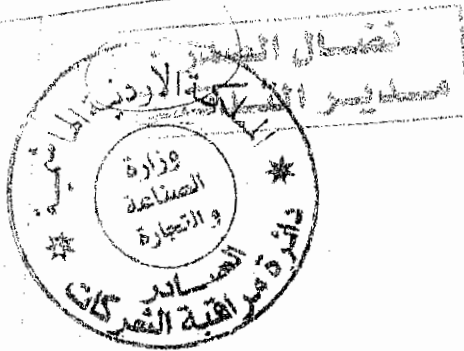 نضال الصدر
مدير
المملكة الأردنية الهاشمية
وزارة
الصناعة
والتجارة
الصادر
دائرة مراقبة الشركات